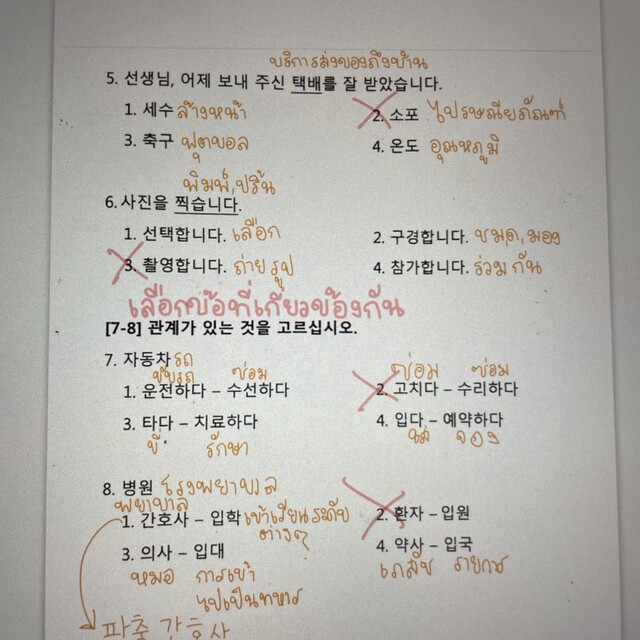 บริการส่งของถึงบ้าน
5. 선생님, 어제 보내 주신 택배를 잘 받았습니다.
1. 세수 ล้างหน้า 2. 소포 ไปรษณียภัณฑ์
3. 축구 ฟุตบอล 4. 온도 อุณหภูมิ
พิมพ์,ปริ้น
6. 사진을 찍습니다.
1. 선택합니다. เลือก 2. 구경합니다. ชมด,มอง
3. 촬영합니다. ถ่ายรูป 4. 참가합니다. ร่วมกัน
เลือกข้อที่เกี่ยวข้องกัน
[7-8] 관계가 있는 것을 고르십시오.
7. 자동차 รถ
ขับรถ ซ่อม ซ่อม ซ่อม
1. 운전하다 – 수선하다 2. 고치다 – 수리하다
3. 타다 – 치료하다 4. 입다 – 예약하다
ขี่ รักษา ใส่ จอง
8. 병원 โรงพยาบาล
พยาบาล
1. 간호사 – 입학 เข้าเรียนระดับ 2. 환자 – 입원
ต่างๆ
3. 의사 – 입대 4. 약사 – 입국
หมอ การเข้า เภสัช
ไปเป็นทหาร
간호사